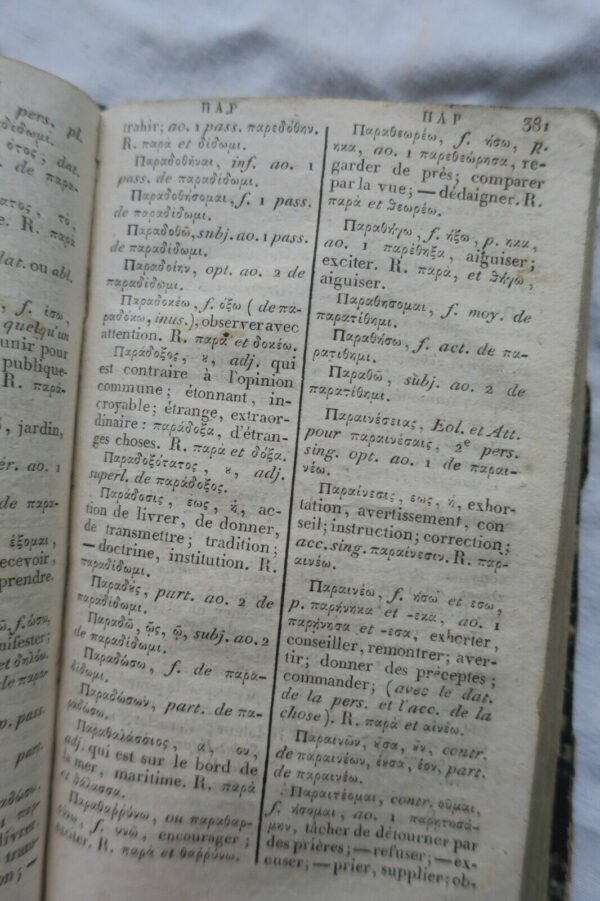 pers. pl.
αδίδωμι.
ότος; dat.
de παρα-
ατος, τό,
dat. ou abl.
f. ίσω,
quelqu'un
unir pour
publique-
R. παρά-
, jardin,
ér. ao. 1
de παρα-
έξομαι,
ecevoir,
prendre.
ῶ, f. ώσω,
nifester;
et δηλόω.
de παρα-
p. pass.
part.
ΠΑΡ
trahir; ao. 1 pass. παρεδόθην.
R. παρὰ et δίδωμι.
Παραδοθῆναι, inf. ao. 1
pass. de παραδίδωμι.
Παραδοθήσομαι, f. 1 pass.
de παραδίδωμι.
Παραδοθῶ, subj. ao. 1 pass.
de παραδίδωμι.
Παραδοίην, opt. ao. 2 de
παραδίδωμι.
Παραδοκέω, f. όξω (de πα-
ραδόκω, inus.), observer avec
attention. R. παρὰ et δοκέω.
Παράδοξος, ȣ, adj. qui
est contraire à l'opinion
commune; étonnant, in-
croyable; étrange, extraor-
dinaire: παράδοξα, d'étran-
ges choses. R. παρὰ et δόξα.
Παραδοξότατος, ȣ, adj.
superl. de παράδοξος.
Παράδοσις, εως, ἡ, ac-
tion de livrer, de donner,
de transmettre; tradition;
—doctrine, institution. R.
παραδίδωμι.
Παραδȣ́ς, part. ao. 2 de
παραδίδωμι.
Παραδῶ, ῷς, ῷ, subj. ao. 2
de παραδίδωμι.
Παραδώσω, f. de παρα-
δίδωμι.
Παραδώσων, part. de πα-
ραδώσω.
Παραθαλάσσιος, α, ον,
adj. qui est sur le bord de
la mer, maritime. R. παρὰ
et θάλασσα.
Παραθαῤῥύνω, ou παραθαρ-
σύνω, f. υνῶ, encourager;
exciter. R. παρὰ et θαῤῥύνω.
ΠΑΡ 381
Παραθεωρέω, f. ήσω, p.
ηκα, ao. 1 παρεθεώρησα, re-
garder de près; comparer
par la vue; — dédaigner. R.
παρὰ et ϑεωρέω.
Παραθήγω, f. ήξω, p. ηκα,
ao. 1 παρέθηξα, aiguiser;
exciter. R. παρὰ, et ϑήγω,
aiguiser.
Παραθήσομαι, f. moy. de
παρατίθημι.
Παραθήσω, f. act. de πα-
ρατίθημι.
Παραθῶ, subj. ao. 2 de
παρατίθημι.
Παραινέσειας, Eol. et Att.
pour παραινέσαις, 2e pers.
sing. opt. ao. 1 de παραι-
νέω.
Παραίνεσις, εως, ἡ, exhor-
tation, avertissement, con
seil; instruction; correction;
acc. sing. παραίνεσιν. R. παρ-
αινέω.
Παραινέω, f. ήσω et έσω,
p. παρήνηκα et -εκα, ao. 1
παρήνησα et -εσα, exhorter,
conseiller, remontrer; aver-
tir; donner des préceptes;
commander; (avec le dat.
de la pers. et l'acc. de la
chose). R. παρὰ et αἰνέω.
Παραινῶν, ȣσα, ȣν, contr.
de παραινέων, έȣσα, έον, part.
de παραινέω.
Παραιτέομαι, contr. οῦμαι,
f. ήσομαι, ao. 1 παρῃτησά-
μην, tâcher de détourner par
des prières; — refuser; — ex-
cuser; — prier, supplier; ob-